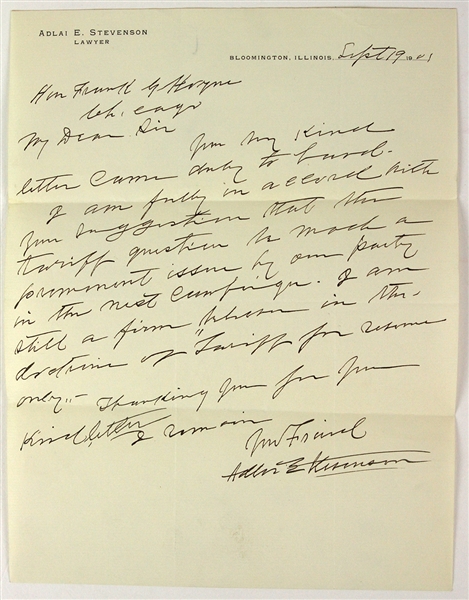 ADLAI E. STEVENSON
LAWYER
BLOOMINGTON, ILLINOIS, Sept 19 1901
Hon Frank G Hoyne
Chicago
My Dear Sir
Your very kind
letter came duly to hand.
I am fully in accord with
your suggestion that the
tariff question be made a
prominent issue by our party
in the next campaign. I am
still a firm believer in the
doctrine of Tariff for revenue
only.- Thanking you for your
kind letter I remain
Your Friend
Adlai E Stevenson